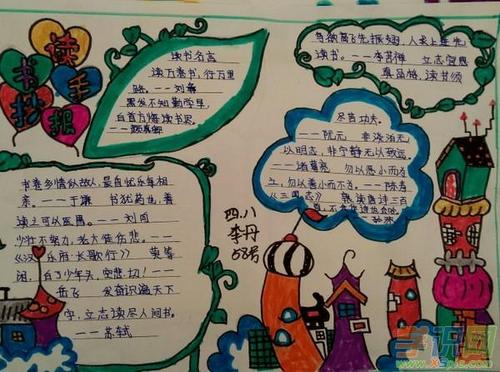 读书手抄报
读书名言
读万卷书，行万里
路。——刘彝
黑发不知勤学早，
白首方悔读书迟。
——颜真卿
鸟欲高飞先振翅，人求上进先
读书。——李苦禅 立志宜思
真品格，读书须
尽苦功夫。
——阮元 非淡泊无
以明志，非宁静无以致远。
——诸葛亮 勿以恶小而为
之，勿以善小而不为。——陈寿
《三国志》 熟读唐诗三百
首，不会作诗也会吟
书卷多情似故人，晨昏忧乐每相
亲。——于谦 书犹药也，善
读之可以医愚。——刘向
少壮不努力，老大徒伤悲。——
《汉乐府·长歌行》 莫等
闲，白了少年头，空悲切！——
岳飞 发奋识遍天下
字，立志读尽人间书。
——苏轼
四.八
李丹
58号
学识网